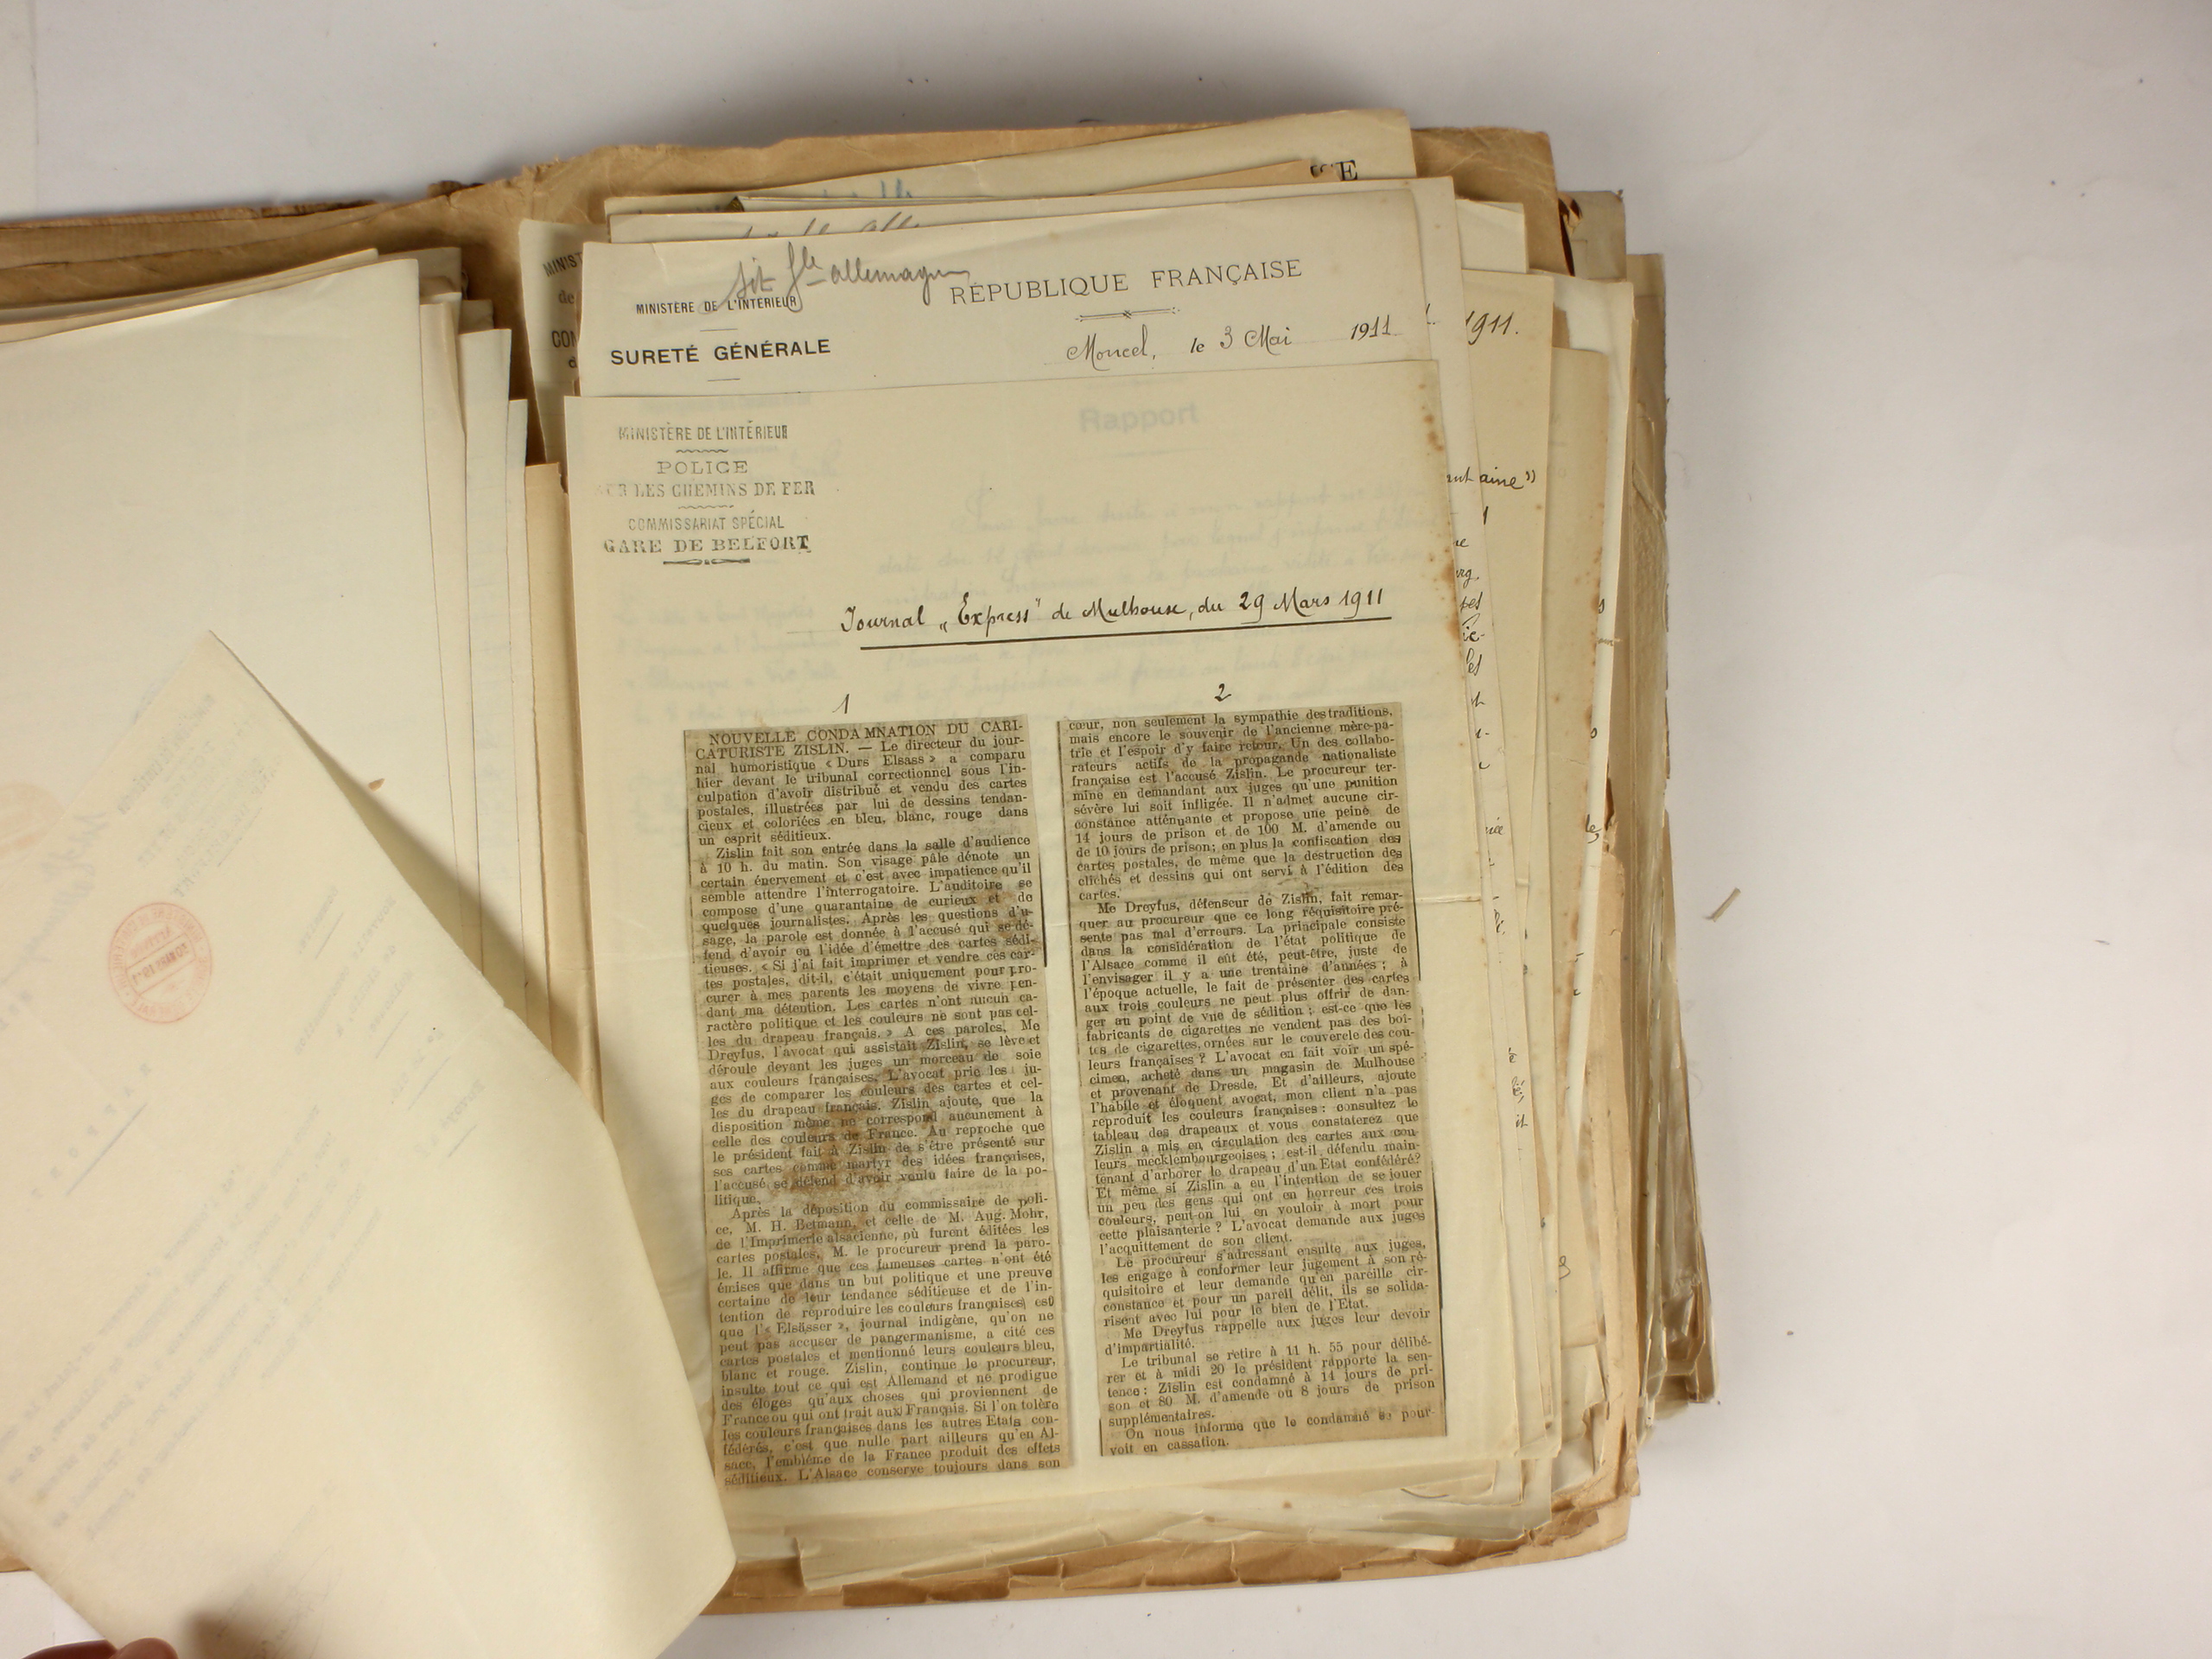 E
sit Gle allemagne
MINISTÈRE DE L'INTERIEUR
RÉPUBLIQUE FRANÇAISE
SURETÉ GÉNÉRALE
Moncel, le 3 Mai 1911
1911.
MINISTÈRE DE L'INTÉRIEUR
POLICE
SUR LES CHEMINS DE FER
COMMISSARIAT SPÉCIAL
GARE DE BELFORT
Rapport
Journal „Express" de Mulhouse, du 29 Mars 1911
1
NOUVELLE CONDAMNATION DU CARI-
CATURISTE ZISLIN. — Le directeur du jour-
nal humoristique « Durs Elsass » a comparu
hier devant le tribunal correctionnel sous l'in-
culpation d'avoir distribué et vendu des cartes
postales, illustrées par lui de dessins tendan-
cieux et coloriées en bleu, blanc, rouge dans
un esprit séditieux.
Zislin fait son entrée dans la salle d'audience
à 10 h. du matin. Son visage pâle dénote un
certain énervement et c'est avec impatience qu'il
semble attendre l'interrogatoire. L'auditoire se
compose d'une quarantaine de curieux et de
quelques journalistes. Après les questions d'u-
sage, la parole est donnée à l'accusé qui se dé-
fend d'avoir eu l'idée d'émettre des cartes sédi-
tieuses. « Si j'ai fait imprimer et vendre ces car-
tes postales, dit-il, c'était uniquement pour pro-
curer à mes parents les moyens de vivre pen-
dant ma détention. Les cartes n'ont aucun ca-
ractère politique et les couleurs ne sont pas cel-
les du drapeau français. » A ces paroles, Me
Dreyfus, l'avocat qui assistait Zislin, se lève et
déroule devant les juges un morceau de soie
aux couleurs françaises. L'avocat prie les ju-
ges de comparer les couleurs des cartes et cel-
les du drapeau français. Zislin ajoute, que la
disposition même ne correspond aucunement à
celle des couleurs de France. Au reproche que
le président fait à Zislin de s'être présenté sur
ses cartes comme martyr des idées françaises,
l'accusé se défend d'avoir voulu faire de la po-
litique.
Après la déposition du commissaire de poli-
ce, M. H. Betmann, et celle de M. Aug. Mohr,
de l'Imprimerie alsacienne, où furent éditées les
cartes postales, M. le procureur prend la paro-
le. Il affirme que ces fameuses cartes n'ont été
émises que dans un but politique et une preuve
certaine de leur tendance séditieuse et de l'in-
tention de reproduire les couleurs françaises est
que l'« Elsässer », journal indigène, qu'on ne
peut pas accuser de pangermanisme, a cité ces
cartes postales et mentionné leurs couleurs bleu,
blanc et rouge. Zislin, continue le procureur,
insulte tout ce qui est Allemand et ne prodigue
des éloges qu'aux choses qui proviennent de
France ou qui ont trait aux Français. Si l'on tolère
les couleurs françaises dans les autres Etats con-
fédérés, c'est que nulle part ailleurs qu'en Al-
sace, l'emblème de la France produit des effets
séditieux. L'Alsace conserve toujours dans son
2
cœur, non seulement la sympathie des traditions,
mais encore le souvenir de l'ancienne mère-pa-
trie et l'espoir d'y faire retour. Un des collabo-
rateurs actifs de la propagande nationaliste
française est l'accusé Zislin. Le procureur ter-
mine en demandant aux juges qu'une punition
sévère lui soit infligée. Il n'admet aucune cir-
constance atténuante et propose une peine de
14 jours de prison et de 100 M. d'amende ou
de 10 jours de prison; en plus la confiscation des
cartes postales, de même que la destruction des
clichés et dessins qui ont servi à l'édition des
cartes.
Me Dreyfus, défenseur de Zislin, fait remar-
quer au procureur que ce long réquisitoire pré-
sente pas mal d'erreurs. La principale consiste
dans la considération de l'état politique de
l'Alsace comme il eût été, peut-être, juste de
l'envisager il y a une trentaine d'années ; à
l'époque actuelle, le fait de présenter des cartes
aux trois couleurs ne peut plus offrir de dan-
ger au point de vue de sédition ; est-ce que les
fabricants de cigarettes ne vendent pas des boi-
tes de cigarettes, ornées sur le couvercle des cou-
leurs françaises ? L'avocat en fait voir un spé-
cimen, acheté dans un magasin de Mulhouse
et provenant de Dresde. Et d'ailleurs, ajoute
l'habile et éloquent avocat, mon client n'a pas
reproduit les couleurs françaises : consultez le
tableau des drapeaux et vous constaterez que
Zislin a mis en circulation des cartes aux cou-
leurs mecklembourgeoises ; est-il défendu main-
tenant d'arborer le drapeau d'un Etat confédéré?
Et même si Zislin a eu l'intention de se jouer
un peu des gens qui ont en horreur ces trois
couleurs, peut-on lui en vouloir à mort pour
cette plaisanterie ? L'avocat demande aux juges
l'acquittement de son client.
Le procureur s'adressant ensuite aux juges,
les engage à conformer leur jugement à son ré-
quisitoire et leur demande qu'en pareille cir-
constance et pour un pareil délit, ils se solida-
risent avec lui pour le bien de l'Etat.
Me Dreyfus rappelle aux juges leur devoir
d'impartialité.
Le tribunal se retire à 11 h. 55 pour délibé-
rer et à midi 20 le président rapporte la sen-
tence : Zislin est condamné à 14 jours de pri-
son et 80 M. d'amende ou 8 jours de prison
supplémentaires.
On nous informe que le condamné se pour-
voit en cassation.